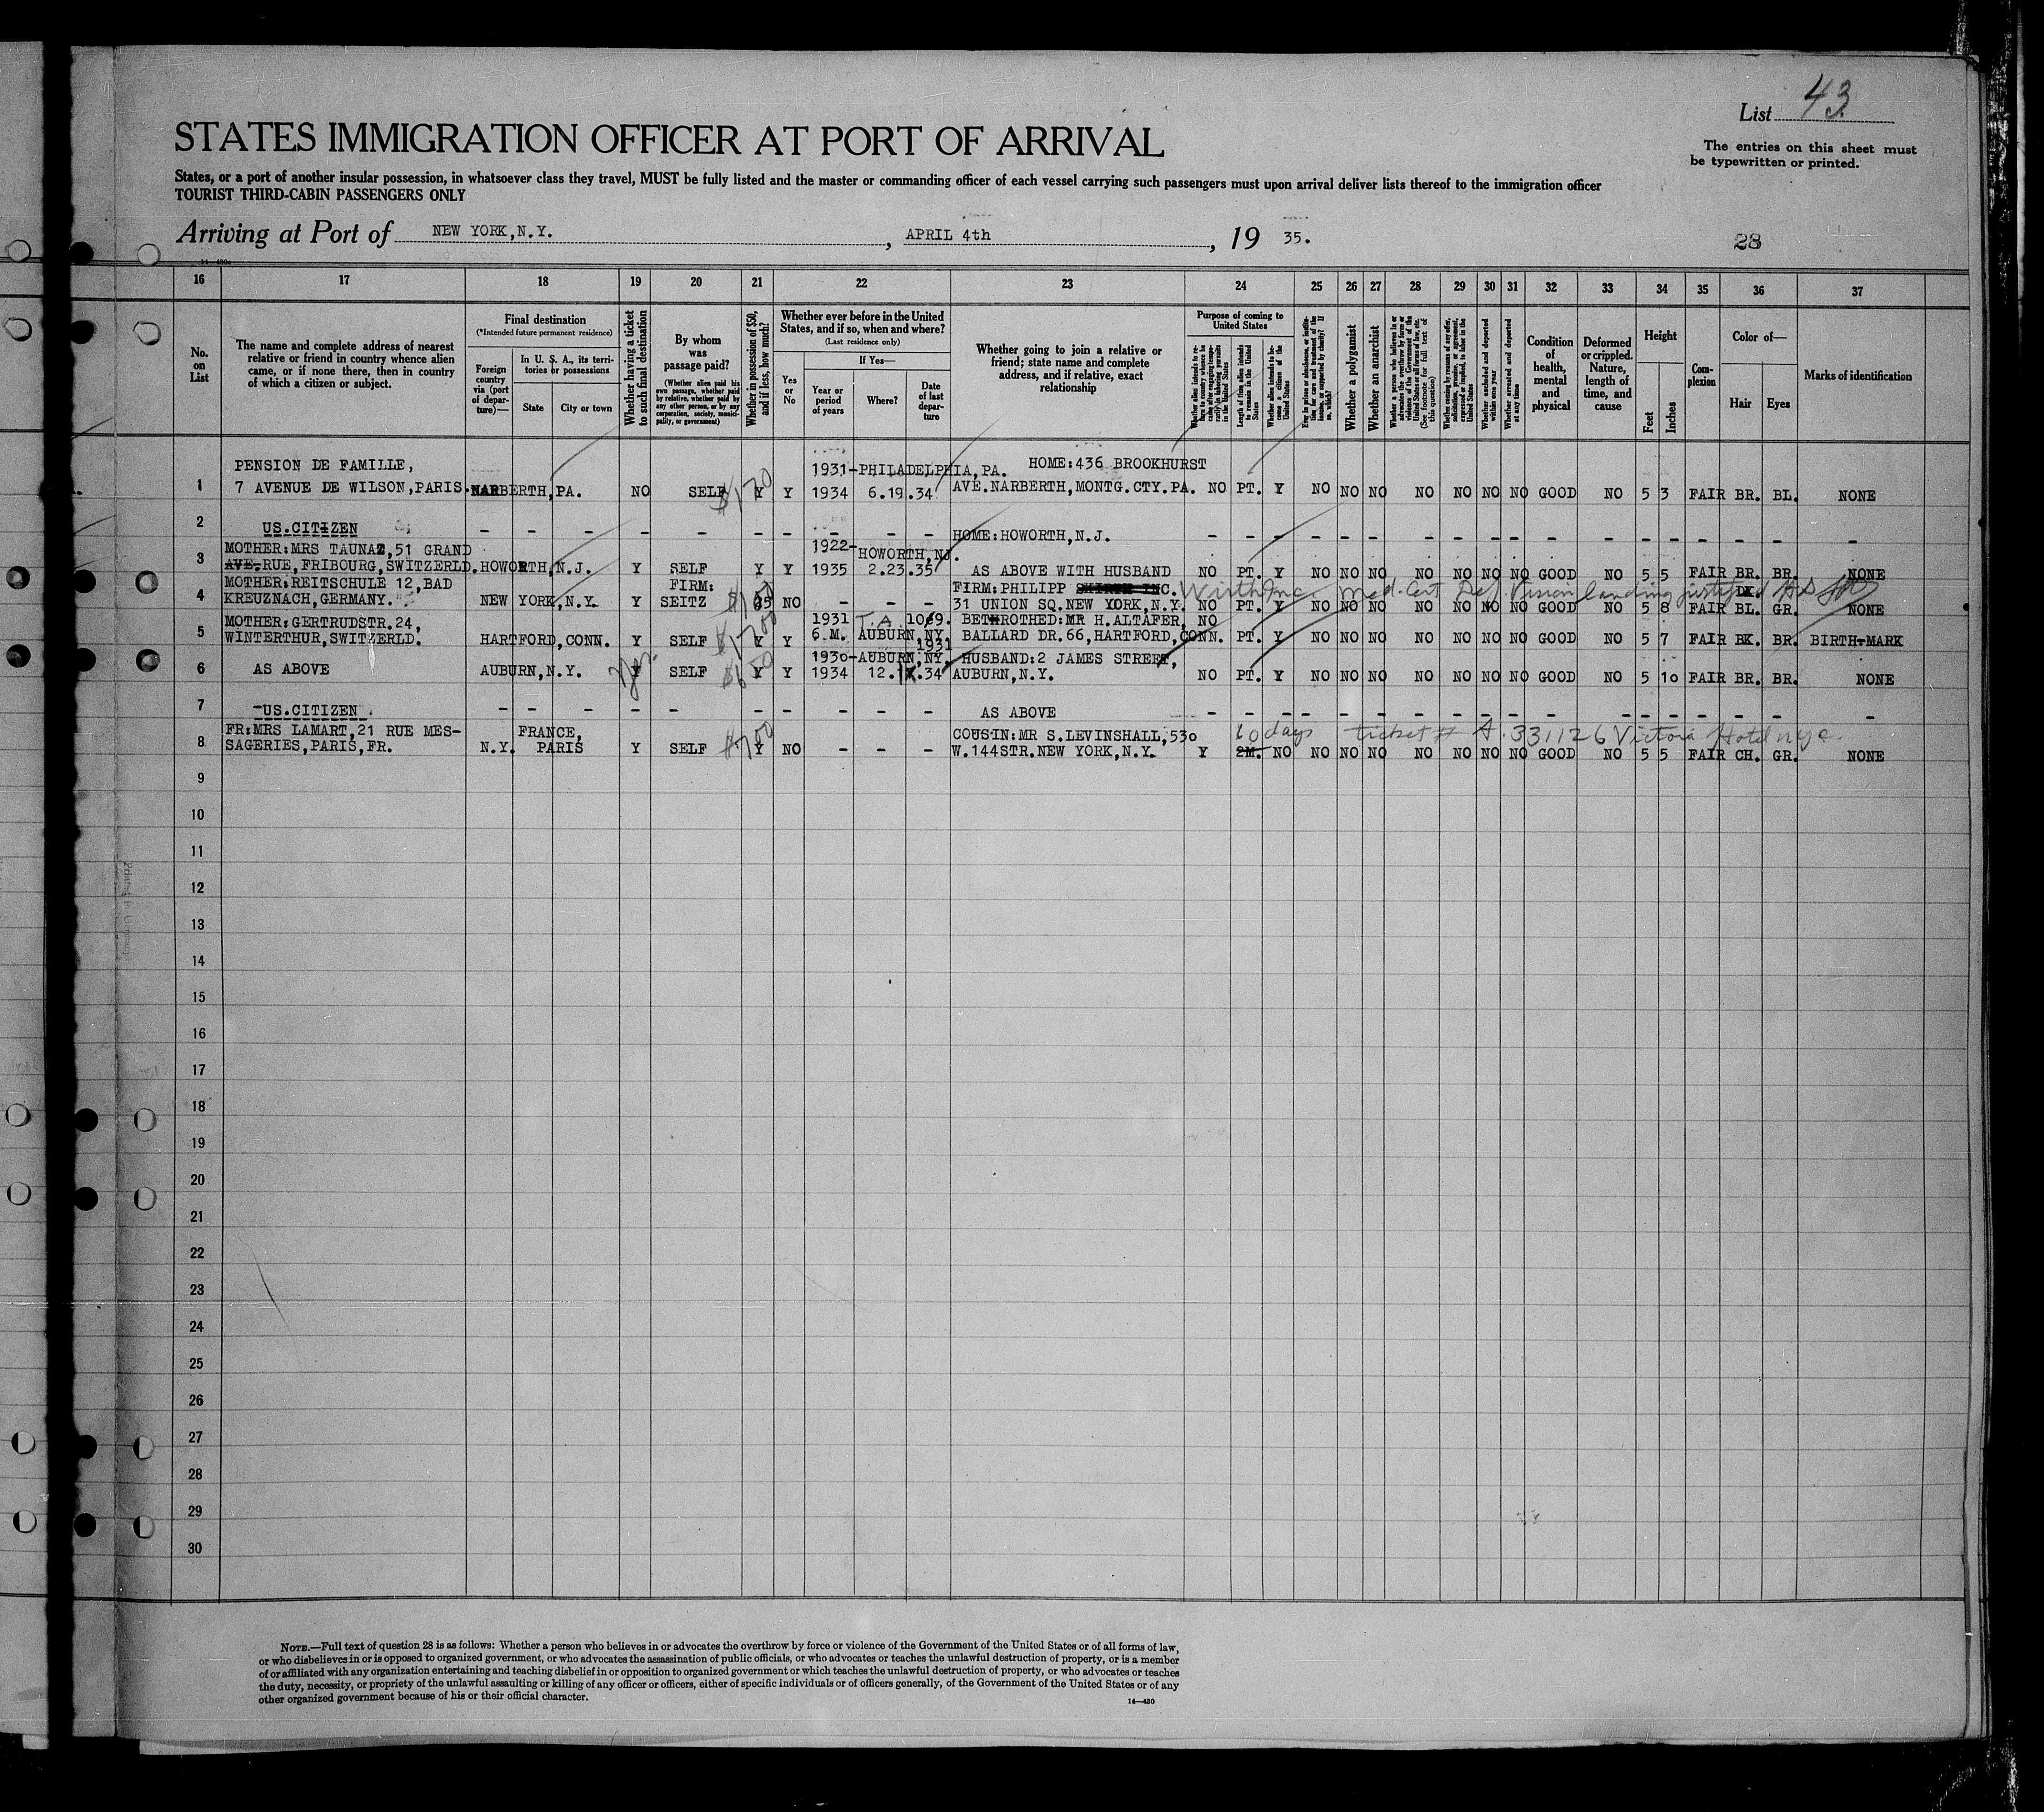 List 43
The entries on this sheet must
be typewritten or printed.
STATES IMMIGRATION OFFICER AT PORT OF ARRIVAL
States, or a port of another insular possession, in whatsoever class they travel, MUST be fully listed and the master or commanding officer of each vessel carrying such passengers must upon arrival deliver lists thereof to the immigration officer
TOURIST THIRD-CABIN PASSENGERS ONLY
Arriving at Port of NEW YORK,N.Y. , APRIL 4th , 19 35.
28
16 17 18 19 20 21 22 23 24 25 26 27 28 29 30 31 32 33 34 35 36 37
No. on List
The name and complete address of nearest relative or friend in country whence alien came, or if none there, then in country of which a citizen or subject.
Final destination
(*Intended future permanent residence)
Foreign country via (port of departure)—
In U. S. A., its territories or possessions
State
City or town
Whether having a ticket to such final destination
By whom was passage paid?
(Whether alien paid his own passage, whether paid by relative, whether paid by any other person, or by any corporation, society, municipality, or government)
Whether in possession of $50, and if less, how much?
Whether ever before in the United States, and if so, when and where?
(Last residence only)
Yes or No
If Yes—
Year or period of years
Where?
Date of last departure
Whether going to join a relative or friend; state name and complete address, and if relative, exact relationship
Purpose of coming to United States
Length of time alien intends to remain in the United States
Whether alien intends to become a citizen of the United States
Whether a polygamist
Whether an anarchist
(See footnote for full text of this question)
Whether excluded and deported within one year
Whether arrested and deported at any time
Condition of health, mental and physical
Deformed or crippled. Nature, length of time, and cause
Height
Feet
Inches
Complexion
Color of—
Hair
Eyes
Marks of identification
PENSION DE FAMILLE, 1931-PHILADELPHIA,PA. HOME:436 BROOKHURST
1 7 AVENUE DE WILSON,PARIS. NARBERTH,PA. NO SELF $120 Y Y 1934 6.19.34 AVE.NARBERTH,MONTG.CTY.PA. NO PT. Y NO NO NO NO NO NO NO GOOD NO 5 3 FAIR BR. BL. NONE
2 US.CITIZEN - - - - - - - - - - HOME:HOWORTH,N.J. - - - - - - - - - - - - - - - - - -
MOTHER:MRS TAUNAZ,51 GRAND 1922- HOWORTH,NJ.
3 AVE.RUE,FRIBOURG,SWITZERLD. HOWORTH,N.J. Y SELF Y Y 1935 2.23.35 AS ABOVE WITH HUSBAND NO PT. Y NO NO NO NO NO NO NO GOOD NO 5 5 FAIR BR. BR. NONE
MOTHER:REITSCHULE 12,BAD FIRM: FIRM:PHILIPP INC. Wirth Inc. Med. Cert Def. Vision landing justified DK.
4 KREUZNACH,GERMANY. NEW YORK,N.Y. Y SEITZ $100 NO - - - 31 UNION SQ.NEW YORK,N.Y. NO PT. Y NO NO NO NO NO NO NO GOOD NO 5 8 FAIR BL. GR. NONE
MOTHER:GERTRUDSTR.24, 1931 T.A. BETHROTHED:MR H.ALTAFER, NO
5 WINTERTHUR,SWITZERLD. HARTFORD,CONN. Y SELF Y Y 6 M. AUBURN,NY. 1931 BALLARD DR.66,HARTFORD,CONN. PT. Y NO NO NO NO NO NO NO GOOD NO 5 7 FAIR BK. BR. BIRTH-MARK
1930-AUBURN,NY. HUSBAND:2 JAMES STREET,
6 AS ABOVE AUBURN,N.Y. Yes. Y SELF Y Y 1934 12. .34 AUBURN,N.Y. NO PT. Y NO NO NO NO NO NO NO GOOD NO 5 10 FAIR BR. BR. NONE
7 -US.CITIZEN - - - - - - - - - - AS ABOVE - - - - - - - - - - - - - - - - - -
FR:MRS LAMART,21 RUE MES- FRANCE, COUSIN:MR S.LEVINSHALL,530 60 days ticket # A.331126 Victoria Hotel nyc
8 SAGERIES,PARIS,FR. N.Y. PARIS Y SELF $700 Y NO - - - W.144STR.NEW YORK,N.Y. Y 2M. NO NO NO NO NO NO NO NO GOOD NO 5 5 FAIR CH. GR. NONE
9
10
11
12
13
14
15
16
17
18
19
20
21
22
23
24
25
26
27
28
29
30
NOTE.—Full text of question 28 is as follows: Whether a person who believes in or advocates the overthrow by force or violence of the Government of the United States or of all forms of law,
or who disbelieves in or is opposed to organized government, or who advocates the assassination of public officials, or who advocates or teaches the unlawful destruction of property, or is a member
of or affiliated with any organization entertaining and teaching disbelief in or opposition to organized government or which teaches the unlawful destruction of property, or who advocates or teaches
the duty, necessity, or propriety of the unlawful assaulting or killing of any officer or officers, either of specific individuals or of officers generally, of the Government of the United States or of any
other organized government because of his or their official character.
14—430